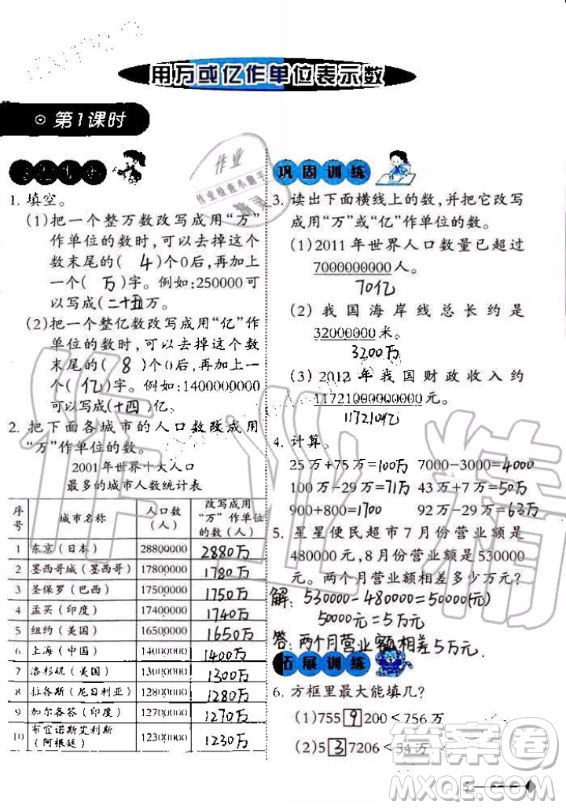 用万或亿作单位表示数
第1课时
1. 填空。
(1)把一个整万数改写成用“万”
作单位的数时,可以去掉这个
数末尾的( 4 )个0后,再加上
一个( 万 )字。例如:250000可
以写成(二十五)万。
(2)把一个整亿数改写成用“亿”作
单位的数时,可以去掉这个数
末尾的( 8 )个0后,再加上一
个(亿)字。例如:1400000000
可以写成(十四)亿。
2. 把下面各城市的人口数改成用
“万”作单位的数。
2001年世界十大人口
最多的城市人数统计表
序号 城市名称 人口数(人) 改写成用“万”作单位的数(人)
1 东京(日本) 28800000 2880万
2 墨西哥城(墨西哥) 17800000 1780万
3 圣保罗(巴西) 17500000 1750万
4 孟买(印度) 17400000 1740万
5 纽约(美国) 16500000 1650万
6 上海(中国) 14000000 1400万
7 洛杉矶(美国) 13000000 1300万
8 拉各斯(尼日利亚) 12800000 1280万
9 加尔各答(印度) 12700000 1270万
10 布宜诺斯艾利斯(阿根廷) 12300000 1230万
巩固训练
3. 读出下面横线上的数,并把它改写
成用“万”或“亿”作单位的数。
(1)2011年世界人口数量已超过
7000000000人。
70亿
(2)我国海岸线总长约是
32000000米。
3200万
(3)2012年我国财政收入约
11721000000000元。
117210亿
4. 计算。
25万+75万=100万 7000-3000=4000
100万-29万=71万 55万+35万=90万
900+800=1700 92万-29万=63万
5. 星星便民超市7月份营业额是
480000元,8月份营业额是530000
元。两个月营业额相差多少万元?
解: 530000-480000=50000元
50000元=5万元
答: 两个月营业额相差5万元。
拓展训练
6. 方框里最大能填几?
(1)755 9 200<756万
(2)5 3 7206<54万
答案卷